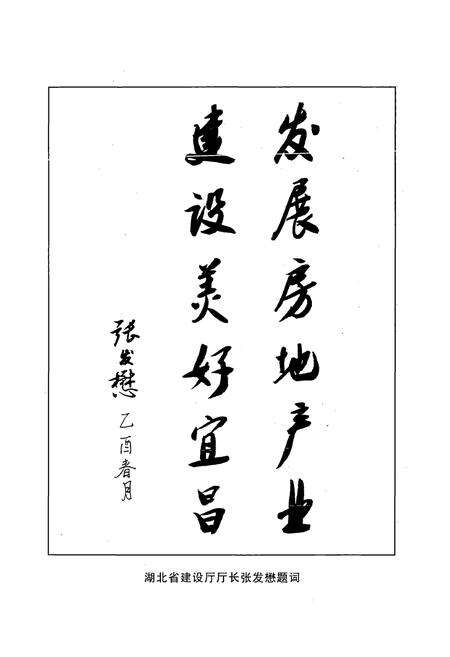 发展房地产业
建设美好宜昌
张发懋
乙酉春月
湖北省建设厅厅长张发懋题词